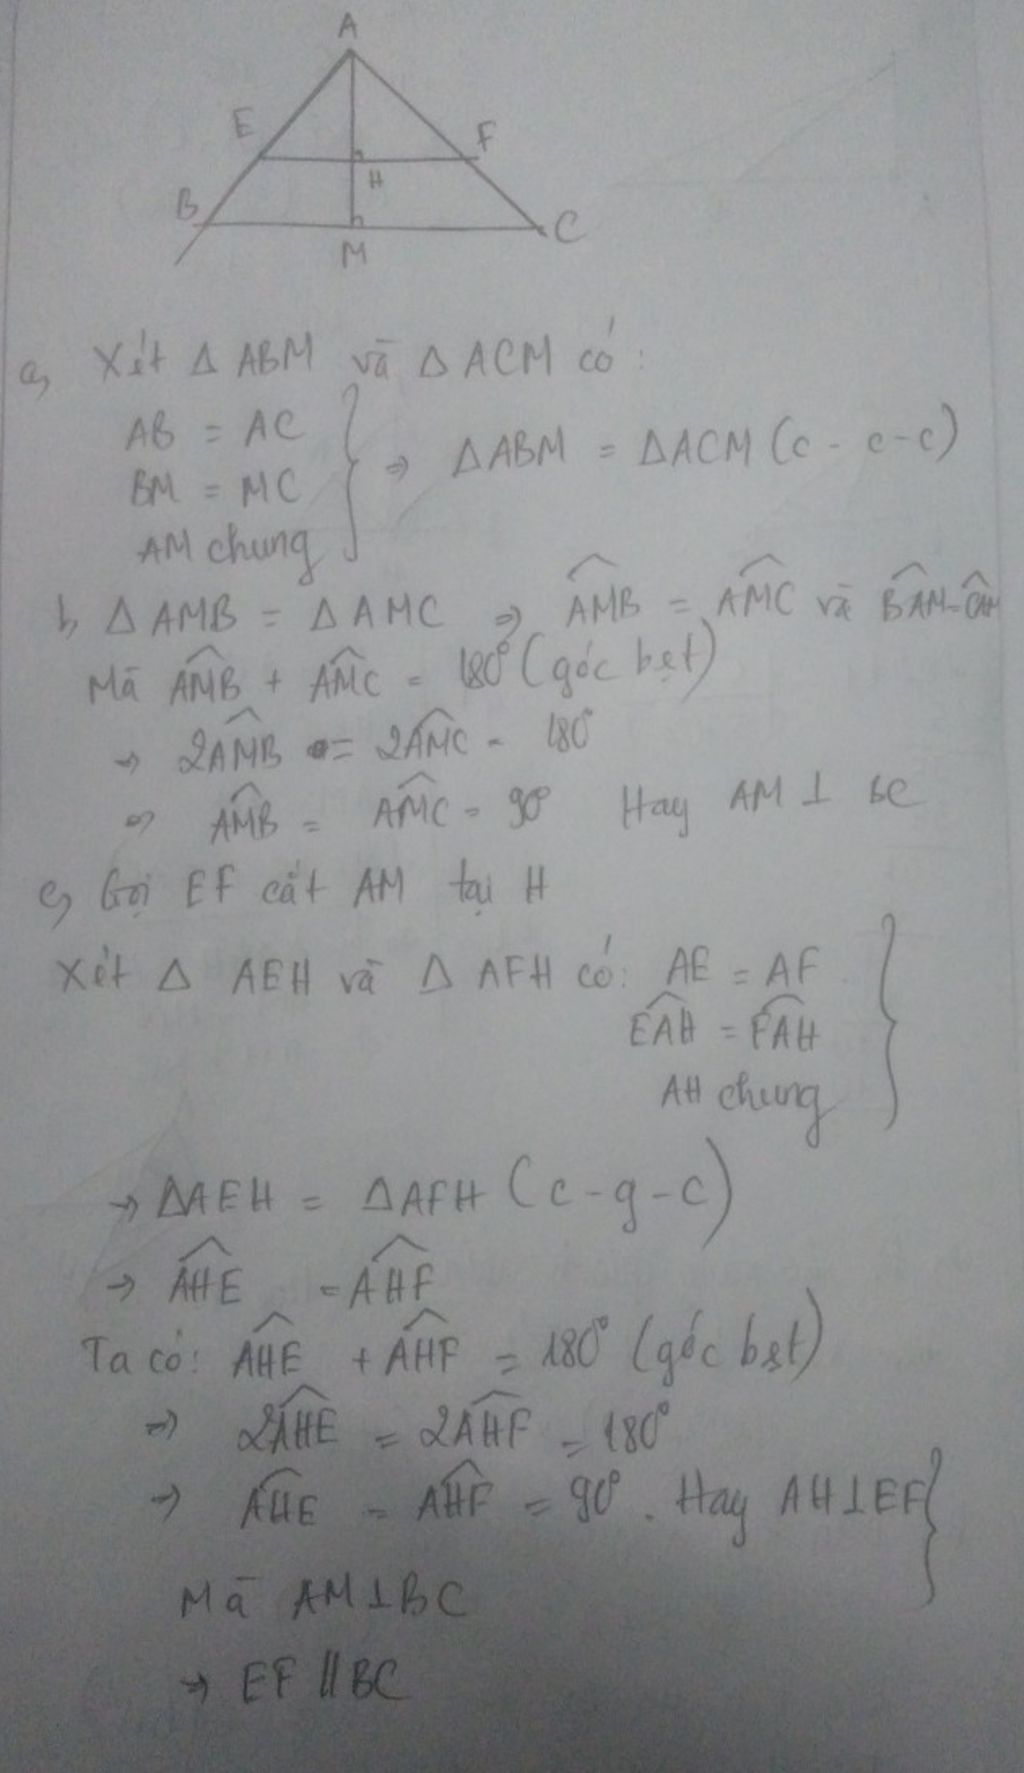 A
E
F
H
B
M
C
a, Xét Δ ABM và Δ ACM có:
AB = AC
BM = MC
AM chung
⇒ ΔABM = ΔACM (c - c - c)
b, Δ AMB = Δ AMC ⇒ \widehat{AMB} = \widehat{AMC} và \widehat{BAM} = \widehat{CAM}
Mà \widehat{AMB} + \widehat{AMC} = 180° (góc bẹt)
→ 2\widehat{AMB} = 2\widehat{AMC} = 180°
⇒ \widehat{AMB} = \widehat{AMC} = 90° Hay AM ⊥ BC
c, Gọi EF cắt AM tại H
Xét Δ AEH và Δ AFH có: AE = AF
\widehat{EAH} = \widehat{FAH}
AH chung
→ ΔAEH = ΔAFH (c - g - c)
→ \widehat{AHE} = \widehat{AHF}
Ta có: \widehat{AHE} + \widehat{AHF} = 180° (góc bẹt)
⇒ 2\widehat{AHE} = 2\widehat{AHF} = 180°
→ \widehat{AHE} = \widehat{AHF} = 90°. Hay AH ⊥ EF
Mà AM ⊥ BC
→ EF // BC